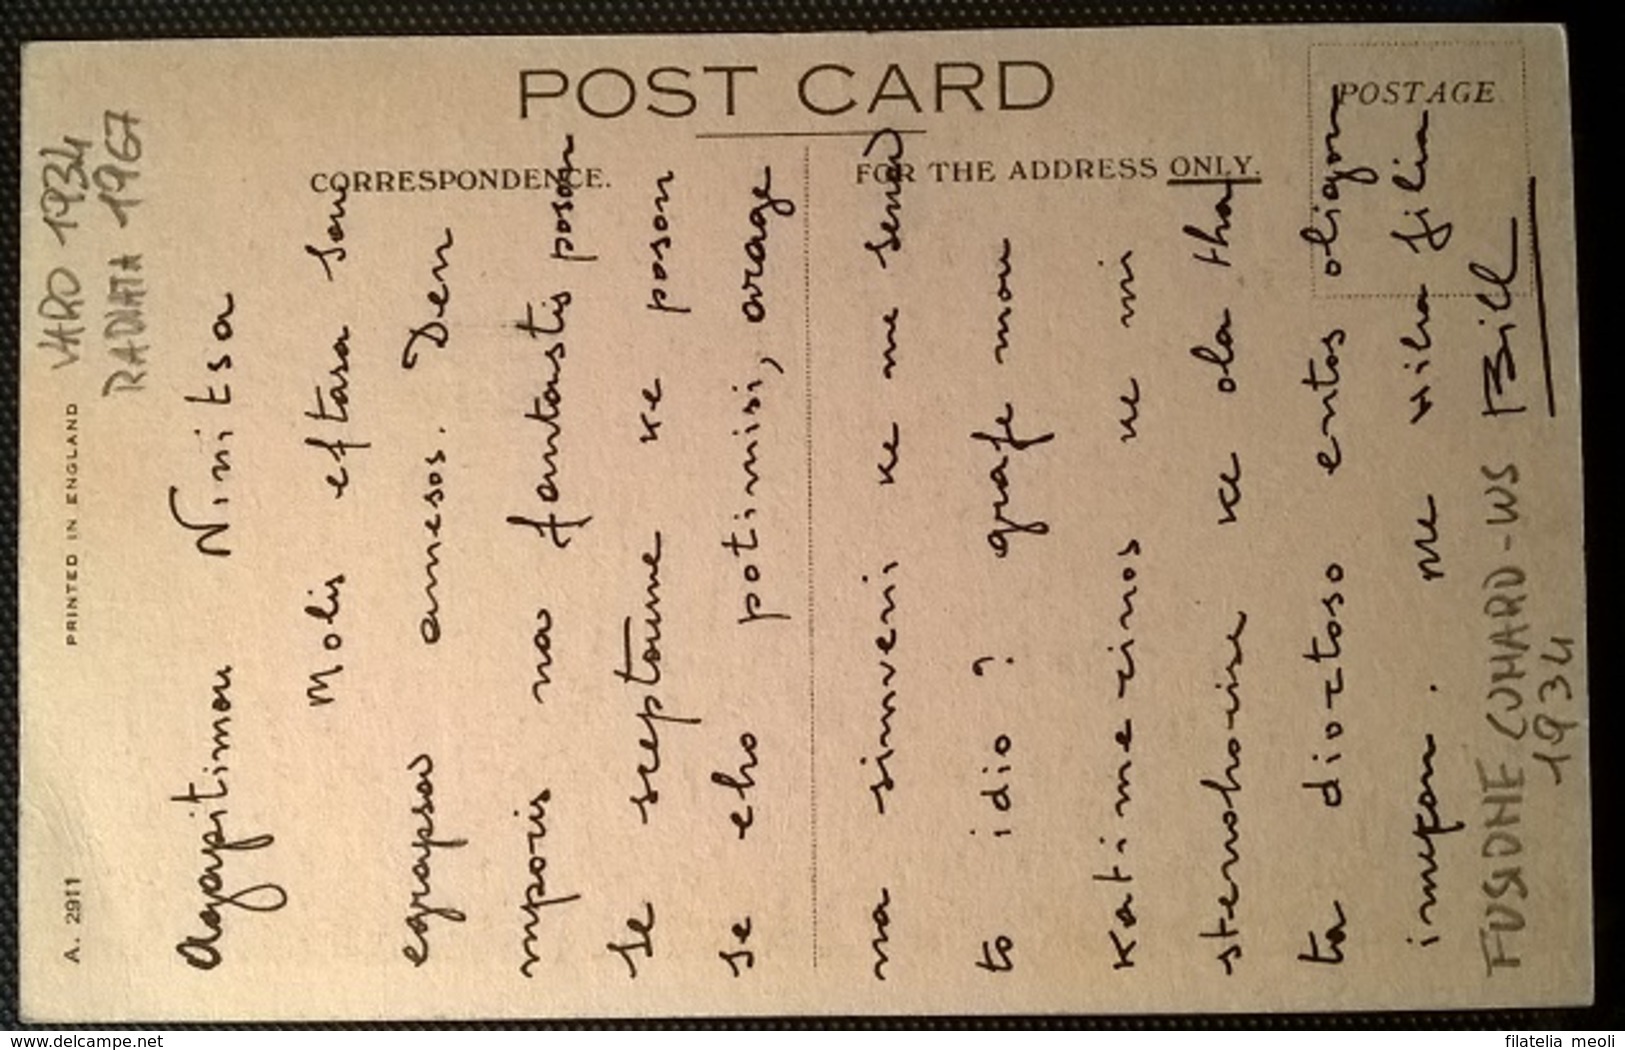 POST CARD
POSTAGE
CORRESPONDENCE.
FOR THE ADDRESS ONLY.
A. 2911 PRINTED IN ENGLAND
VARO 1934
RADIATA 1967
Agapitimou Ninitsa
Molis eftasa sou
egrapsa amesos. Den
mporis na fantastis poson
se sceptome ke poson
se eho potimisi, arage
na simveni ke me sena
to idio? grafe mou
ke mi
stenohorise ke ola tha
ta entos oligon
imeron. Me filia
Bill
FUSIONE CUNARD-WS
1934
www.delcampe.net
filatelia meoli